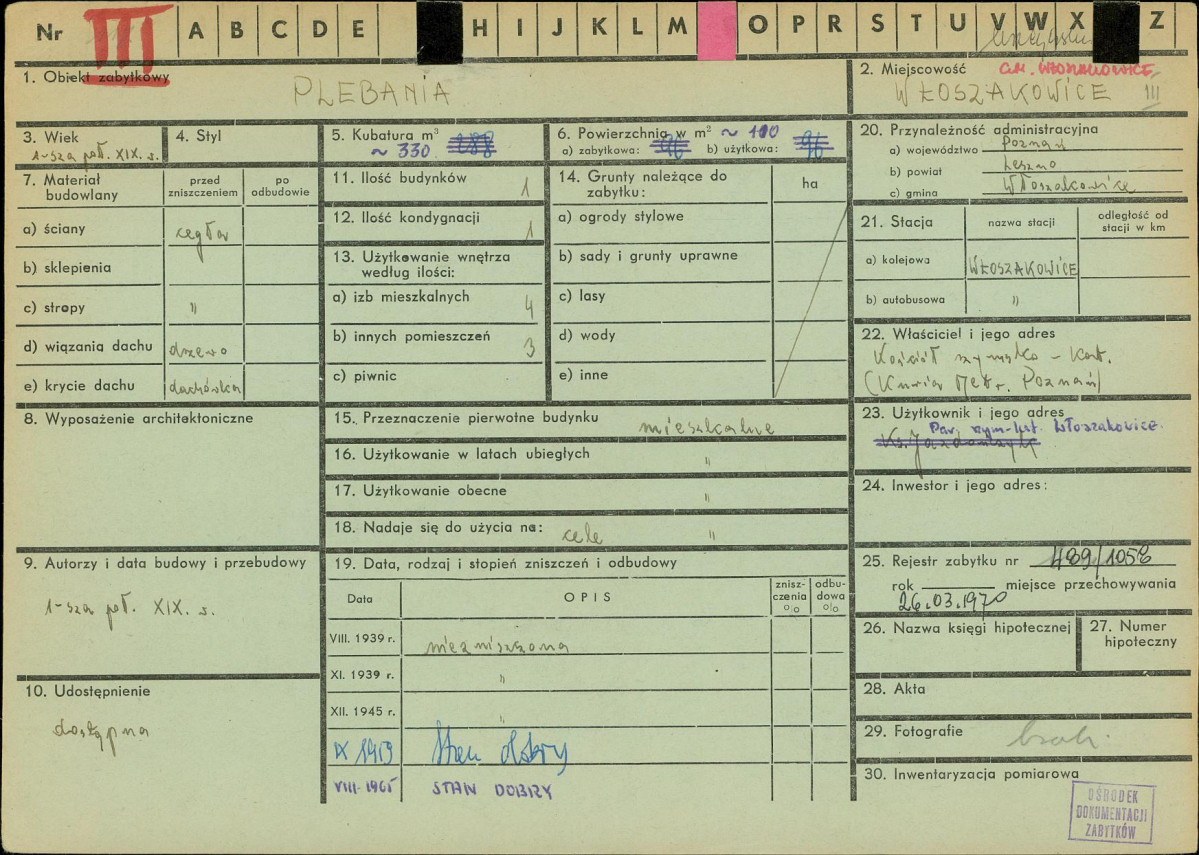 Nr III A B C D E H I J K L M O P R S T U V W X Z
1. Obiekt zabytkowy
PLEBANIA
2. Miejscowość
GM. WŁOSZAKOWICE
WŁOSZAKOWICE III
3. Wiek
1-sza poł. XIX. s.
4. Styl
5. Kubatura m³
~ 330 288
6. Powierzchnia w m² ~ 110
a) zabytkowa: 96 b) użytkowa: 96
7. Materiał budowlany
przed zniszczeniem
po odbudowie
a) ściany cegła
b) sklepienia
c) stropy "
d) wiązania dachu drzewo
e) krycie dachu dachówka
8. Wyposażenie architektoniczne
9. Autorzy i data budowy i przebudowy
1-sza poł. XIX. s.
10. Udostępnienie
dostępna
11. Ilość budynków 1
12. Ilość kondygnacji 1
13. Użytkowanie wnętrza
według ilości:
a) izb mieszkalnych 4
b) innych pomieszczeń 3
c) piwnic
14. Grunty należące do
zabytku:
ha
a) ogrody stylowe
b) sady i grunty uprawne
c) lasy
d) wody
e) inne
15. Przeznaczenie pierwotne budynku mieszkalne
16. Użytkowanie w latach ubiegłych "
17. Użytkowanie obecne "
18. Nadaje się do użycia na: cele "
19. Data, rodzaj i stopień zniszczeń i odbudowy
Data
OPIS
znisz-
czenia
%
odbu-
dowa
%
VIII. 1939 r. niezniszczona
XI. 1939 r. "
XII. 1945 r. "
IX 1959 Stan dobry
VIII-1965 STAN DOBRY
20. Przynależność administracyjna
a) województwo Poznań
b) powiat Leszno
c) gmina Włoszakowice
21. Stacja
nazwa stacji
odległość od
stacji w km
a) kolejowa WŁOSZAKOWICE
b) autobusowa "
22. Właściciel i jego adres
Kościół rzymsko - Kat.
(Kuria Metr. Poznań)
23. Użytkownik i jego adres
Par. rzym-kat. Włoszakowice.
24. Inwestor i jego adres:
25. Rejestr zabytku nr 489/1058
rok miejsce przechowywania
26.03.1970
26. Nazwa księgi hipotecznej
27. Numer
hipoteczny
28. Akta
29. Fotografie brak.
30. Inwentaryzacja pomiarowa
OŚRODEK
DOKUMENTACJI
ZABYTKÓW